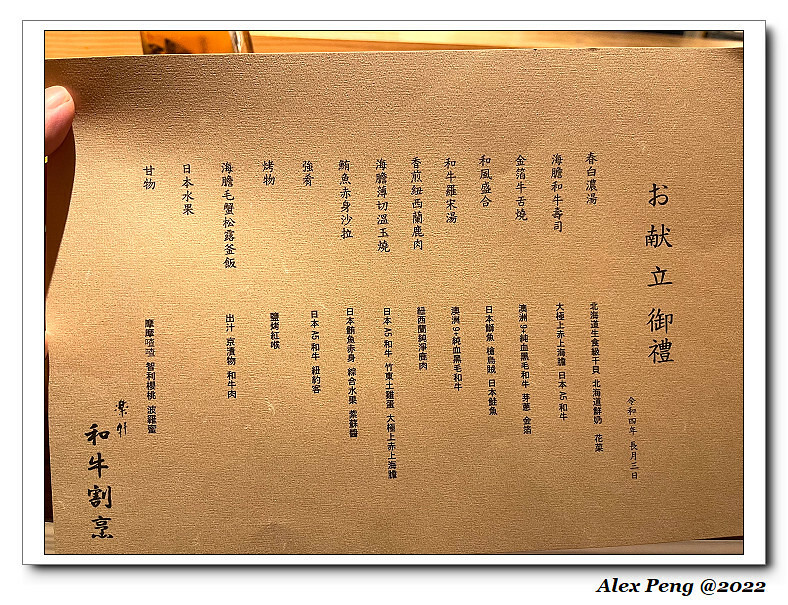 お献立御禮
令和四年 長月三日
春白濃湯
北海道生食級干貝 北海道鮮奶 花菜
海膽和牛壽司
大極上赤上海膽 日本 A5 和牛
金箔牛舌燒
澳洲 9+純血黑毛和牛 芽蔥 金箔
和風盛合
日本鰤魚 槍烏賊 日本鮭魚
和牛羅宋湯
澳洲 9+純血黑毛和牛
香煎紐西蘭鹿肉
紐西蘭純淨鹿肉
海膽薄切溫玉燒
日本 A5 和牛 竹東土雞蛋 大極上赤上海膽
鮪魚赤身沙拉
日本鮪魚赤身 綜合水果 紫蘇醬
強肴
日本 A5 和牛 紐約客
烤物
鹽烤紅喉
海膽毛蟹松露釜飯
出汁 京漬物 和牛肉
日本水果
甘物
摩摩喳喳 智利櫻桃 波羅蜜
和牛割烹
Alex Peng @2022